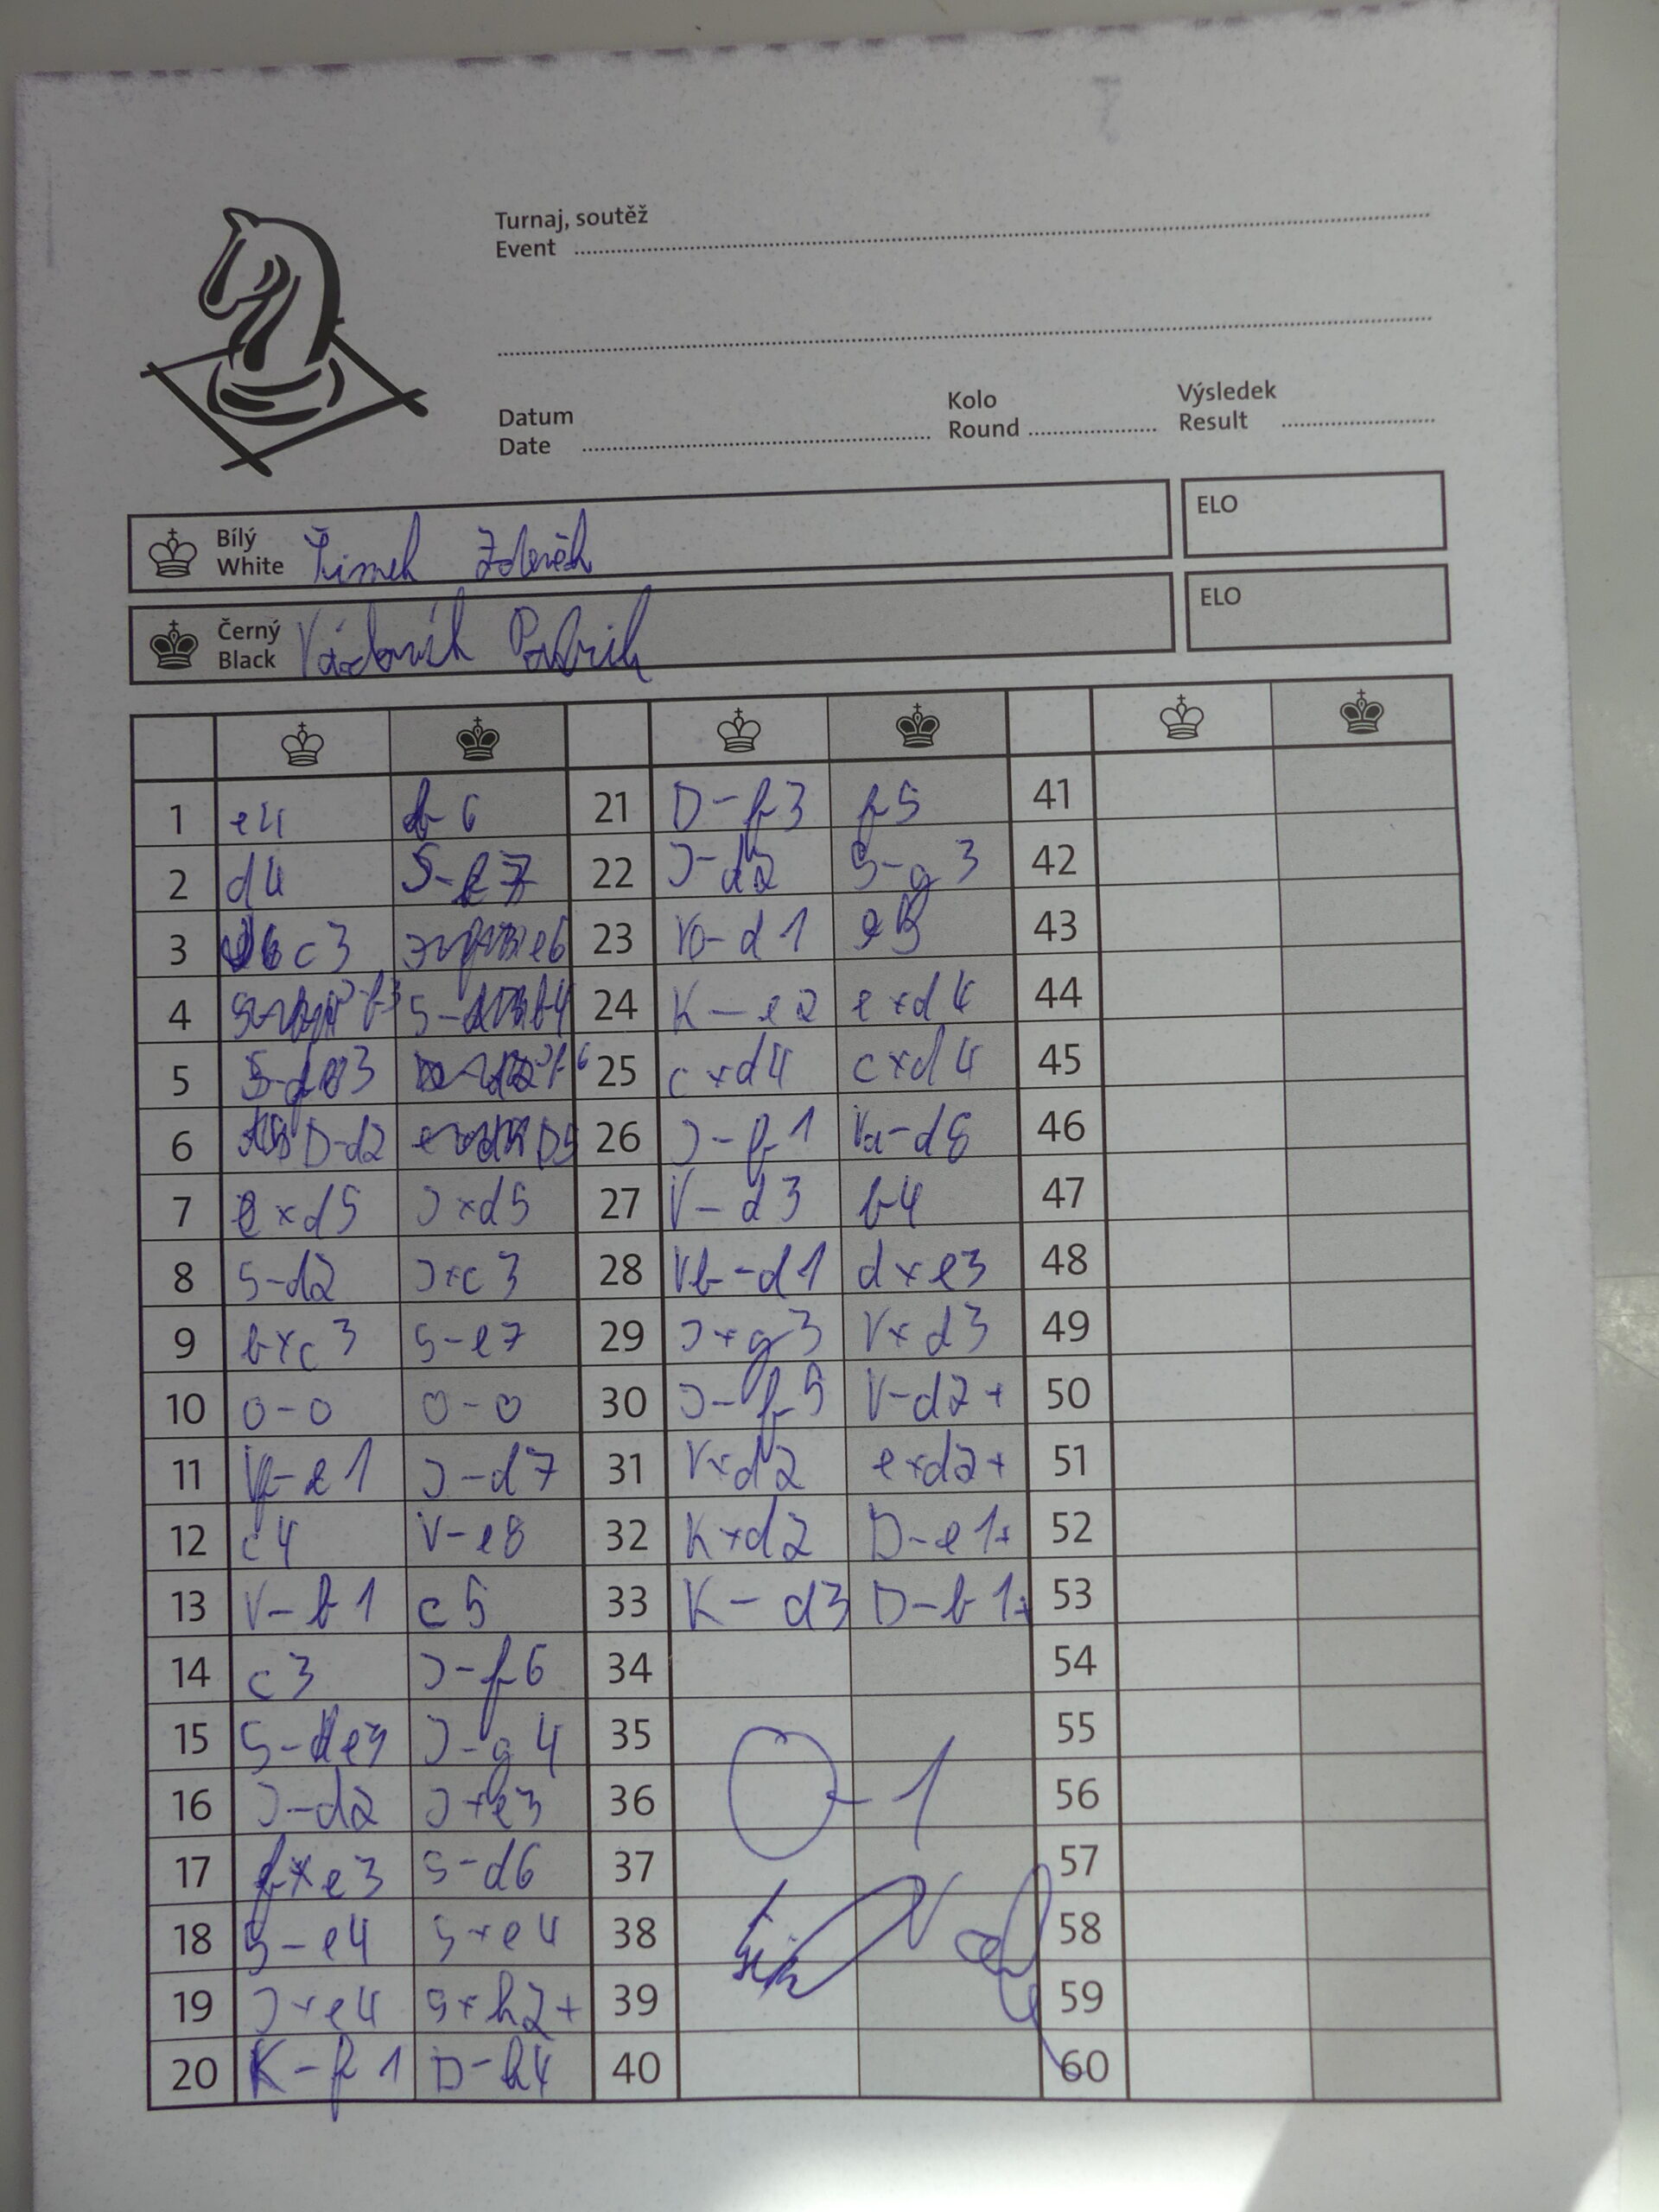 Turnaj, soutěž
Event
Datum
Date
Kolo
Round
Výsledek
Result
Bílý
White Šimek Zdeněk
ELO
Černý
Black Vádovník Patrik
ELO
1 e4 b6 21 D-f3 f5 41
2 d4 S-b7 22 J-d2 S-g3 42
3 c3 e6 23 Vb-d1 e5 43
4 J-f3 S-b4 24 K-e2 exd4 44
5 S-d3 J-f6 25 cxd4 cxd4 45
6 D-d2 D5 26 J-f1 Va-d8 46
7 exd5 Jxd5 27 V-d3 b4 47
8 S-d2 Jxc3 28 Vb-d1 dxe3 48
9 bxc3 S-e7 29 Jxg3 Vxd3 49
10 0-0 0-0 30 J-f5 V-d2+ 50
11 Vf-e1 J-d7 31 Vxd2 exd2+ 51
12 c4 V-e8 32 Kxd2 D-e1+ 52
13 V-b1 c5 33 K-d3 D-b1+ 53
14 c3 J-f6 34 54
15 S-e3 J-g4 35 55
16 J-d2 Jxe3 36 56
17 fxe3 S-d6 37 57
18 S-e4 Sxe4 38 58
19 Jxe4 Sxh2+ 39 59
20 K-f1 D-h4 40 60
0-1